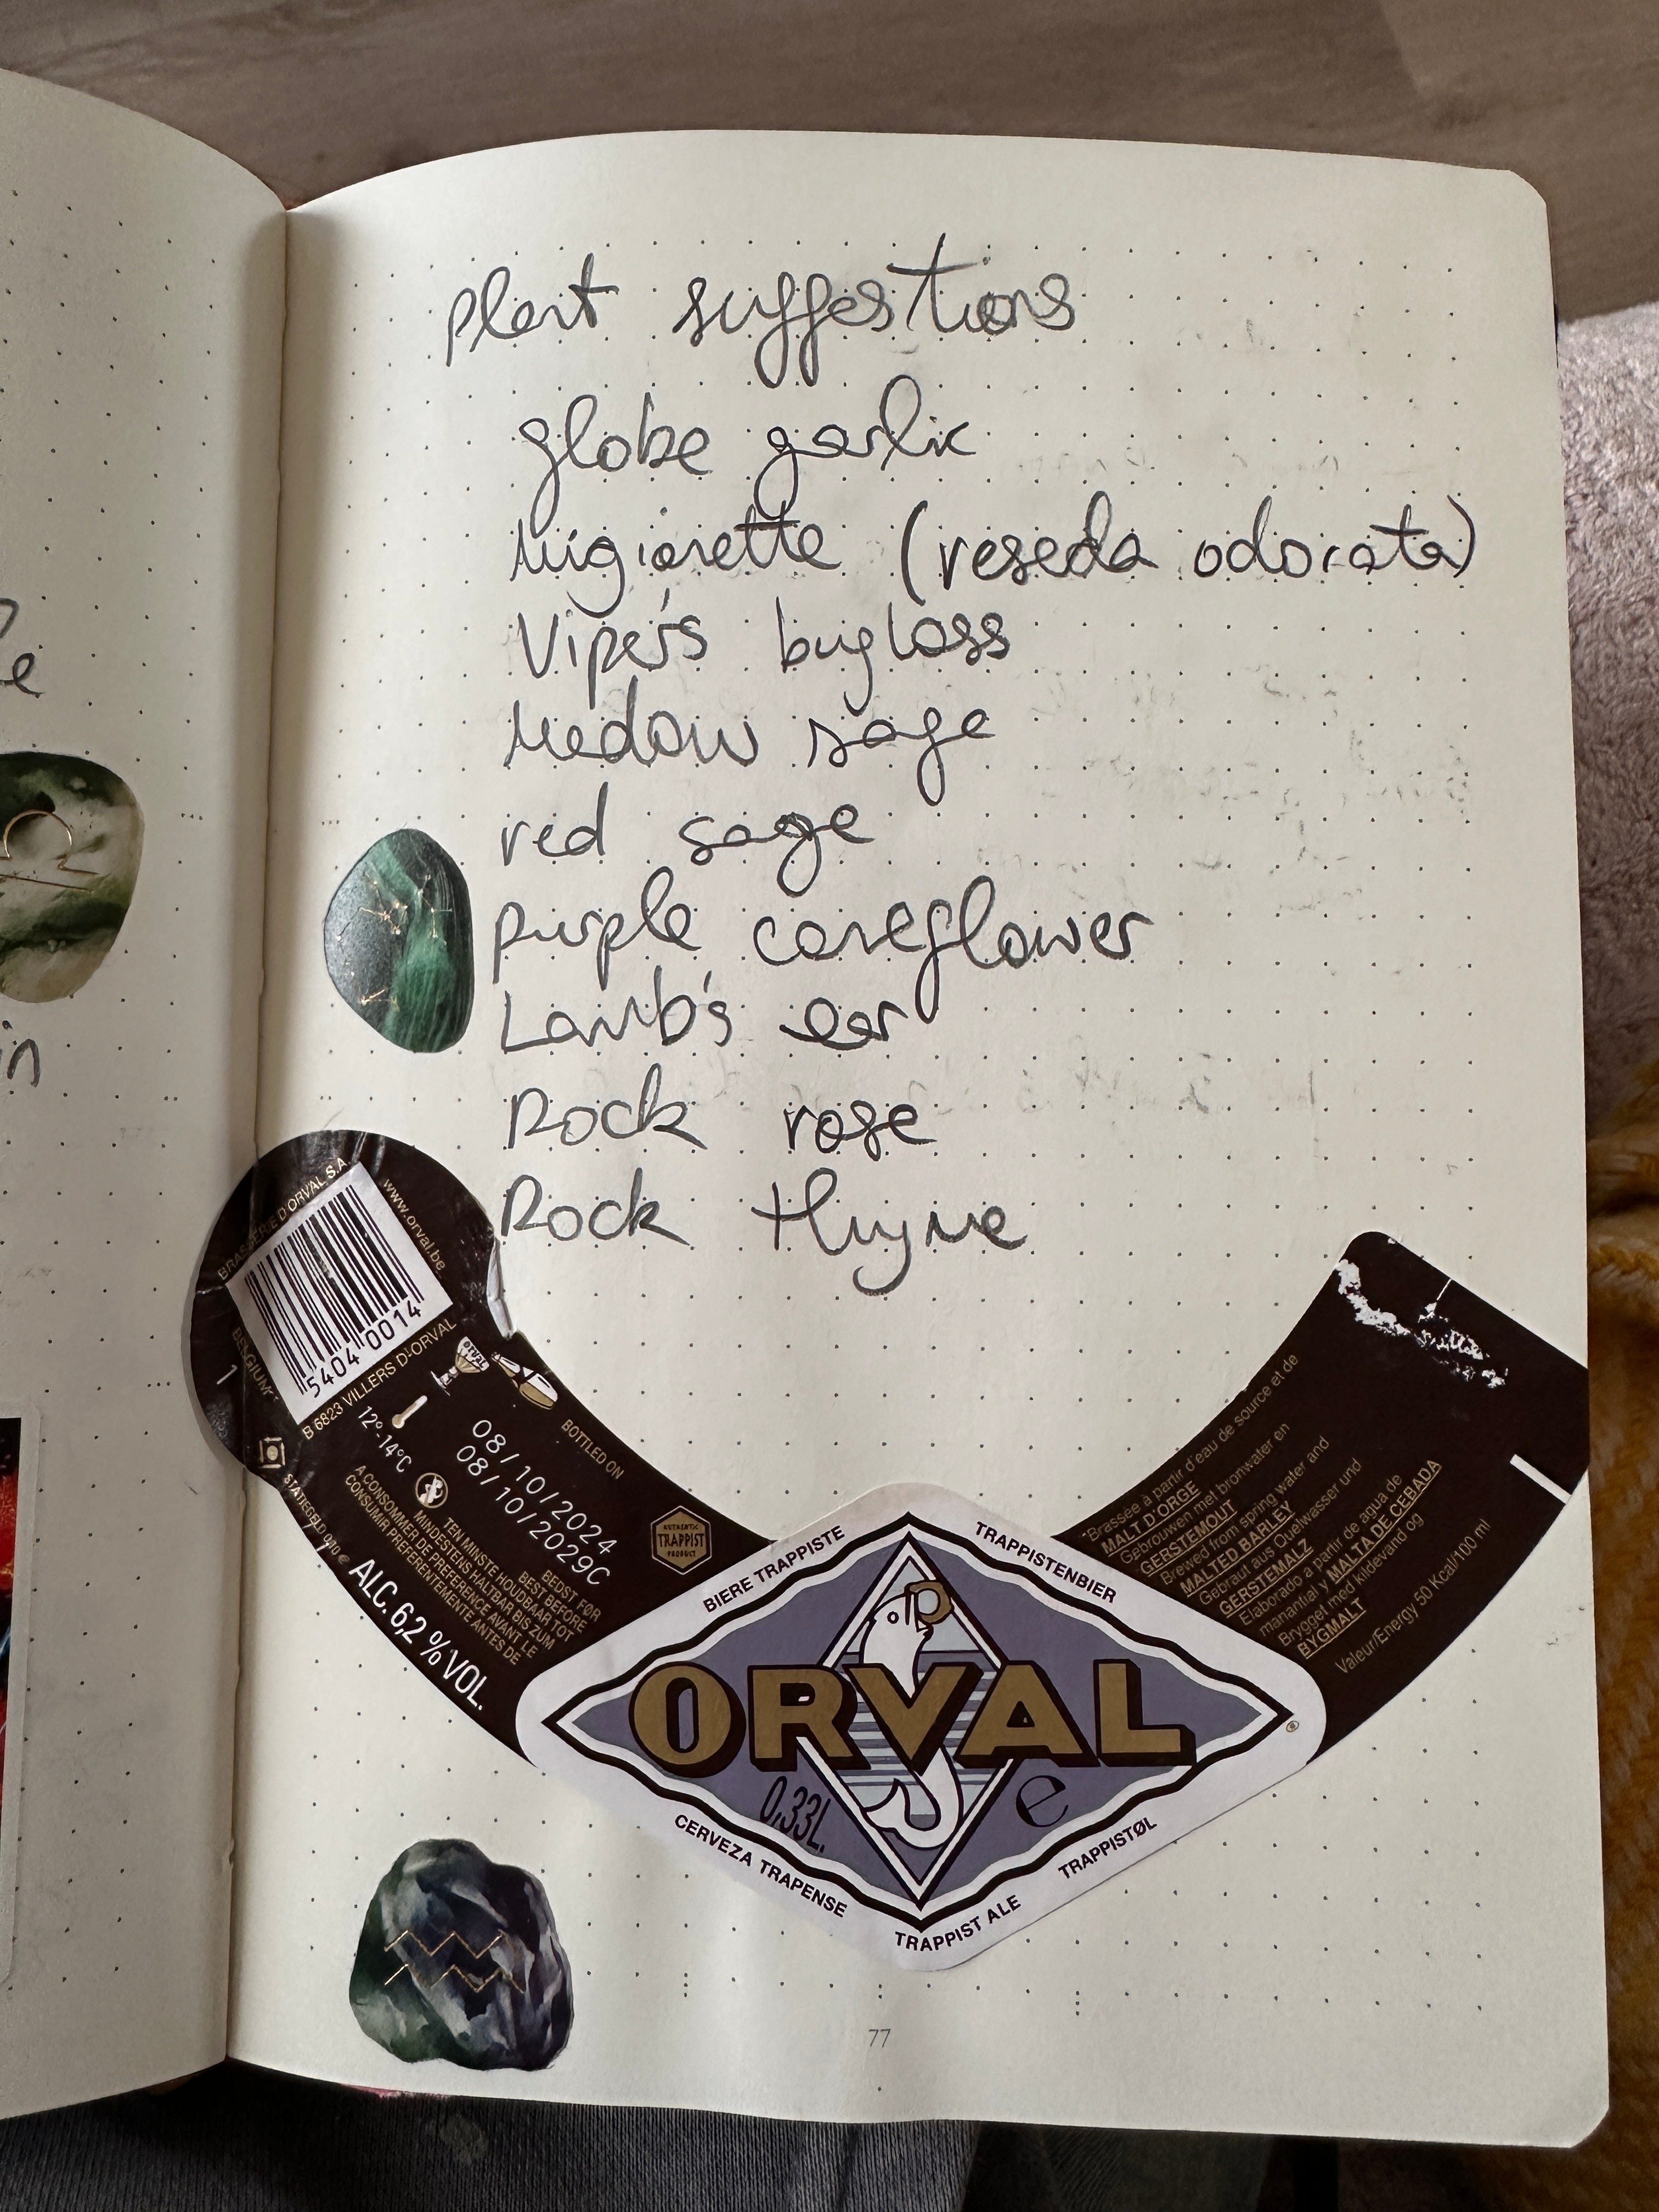 e
in
plant suggestions
globe garlic
Migionette (reseda odorata)
Viper's bugloss
Medow sage
red sage
purple coneflower
Lamb's ear
Rock rose
Rock thyme
BRASSERIE D'ORVAL S.A.
www.orval.be
5404 0014
BELGIUM
B 6823 VILLERS D'ORVAL
1
ORVAL
12°-14°C
BOTTLED ON
08/10/2024
08/10/2029C
STATIEGELD 0,10 €
BEDST FØR
BEST BEFORE
TEN MINSTE HOUDBAAR TOT
MINDESTENS HALTBAR BIS ZUM
A CONSOMMER DE PREFERENCE AVANT LE
CONSUMIR PREFERENTEMENTE ANTES DE
ALC. 6,2 % VOL.
AUTHENTIC
TRAPPIST
PRODUCT
BIERE TRAPPISTE
TRAPPISTENBIER
ORVAL
®
0,33L.
e
CERVEZA TRAPENSE
TRAPPIST ALE
TRAPPISTØL
Brassée à partir d'eau de source et de
MALT D'ORGE
Gebrouwen met bronwater en
GERSTEMOUT
Brewed from spring water and
MALTED BARLEY
Gebraut aus Quelwasser und
GERSTEMALZ
Elaborado a partir de agua de
manantial y MALTA DE CEBADA
Brygget med kildevand og
BYGMALT
Valeur/Energy 50 Kcal/100 ml
77